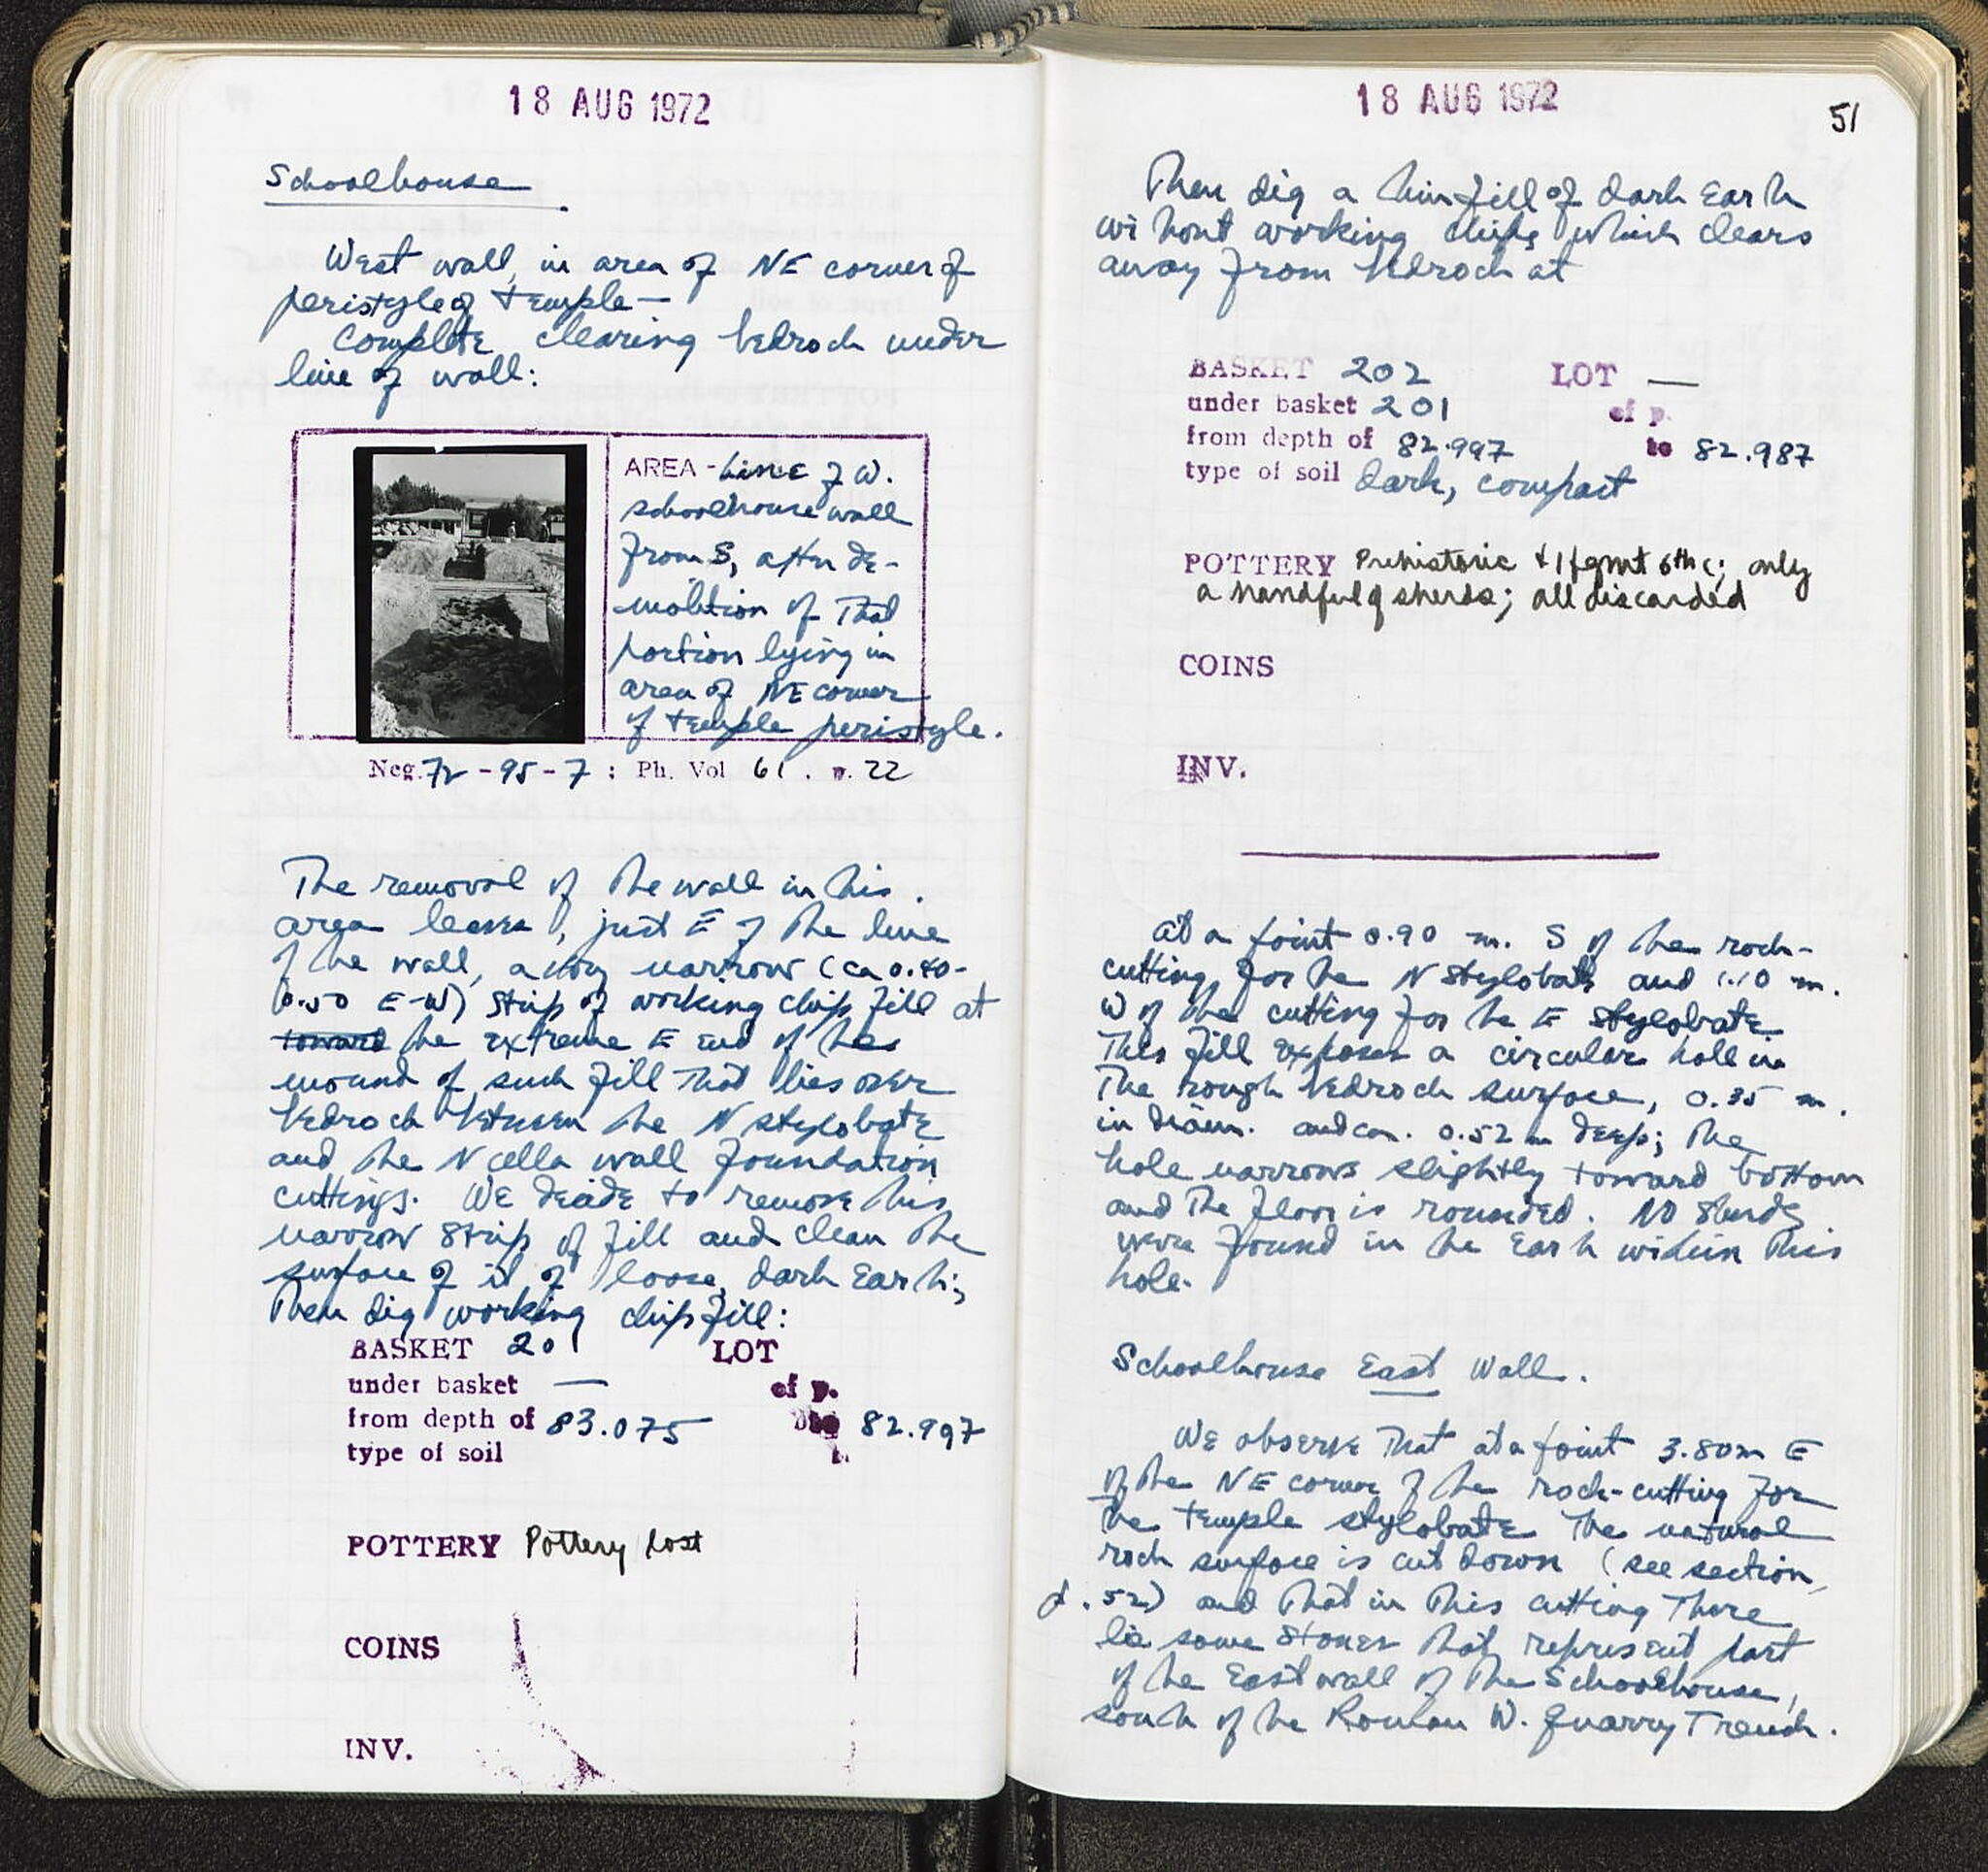 18 AUG 1972
Schoolhouse
West wall, in area of NE corner of
peristyle of temple —
Complete clearing bedrock under
line of wall:
AREA - Line of W.
schoolhouse wall
from S, after de-
molition of that
portion lying in
area of NE corner
of temple peristyle.
Neg. 72 - 95 - 7 ; Ph. Vol 61 . p. 22
The removal of the wall in this
area leaves, just E of the line
of the wall, a very narrow (ca 0.40-
0.50 E-W) strip of working chip fill at
toward the extreme E end of the
mound of such fill that lies over
bedrock between the N stylobate
and the N cella wall foundation
cuttings. We decide to remove this
narrow strip of fill and clean the
surface of it of loose, dark earth;
Then dig working chip fill:
BASKET 201 LOT
under basket — of p.
from depth of 83.075 to 82.997
type of soil
POTTERY Pottery lost
COINS
INV.
18 AUG 1972
51
Then dig a thin fill of dark earth
without working chips which clears
away from bedrock at
BASKET 202 LOT —
under basket 201 of p.
from depth of 82.997 to 82.987
type of soil dark, compact
POTTERY Prehistoric + 1 fgmt 6th c; only
a handful of sherds; all discarded
COINS
INV.
At a point 0.90 m. S of the rock-
cutting for the N stylobate and 1.10 m.
W of the cutting for the E stylobate
This fill exposes a circular hole in
the rough bedrock surface, 0.35 m.
in diam. and ca. 0.52 m deep; the
hole narrows slightly toward bottom
and the floor is rounded. No sherds
were found in the earth within this
hole.
Schoolhouse East Wall.
We observe that at a point 3.80m E
of the NE corner of the rock-cutting for
the temple stylobate the natural
rock surface is cut down (see section,
p. 52) and that in this cutting there
lie some stones that represent part
of the East wall of the Schoolhouse,
south of the Roman W. Quarry Trench.